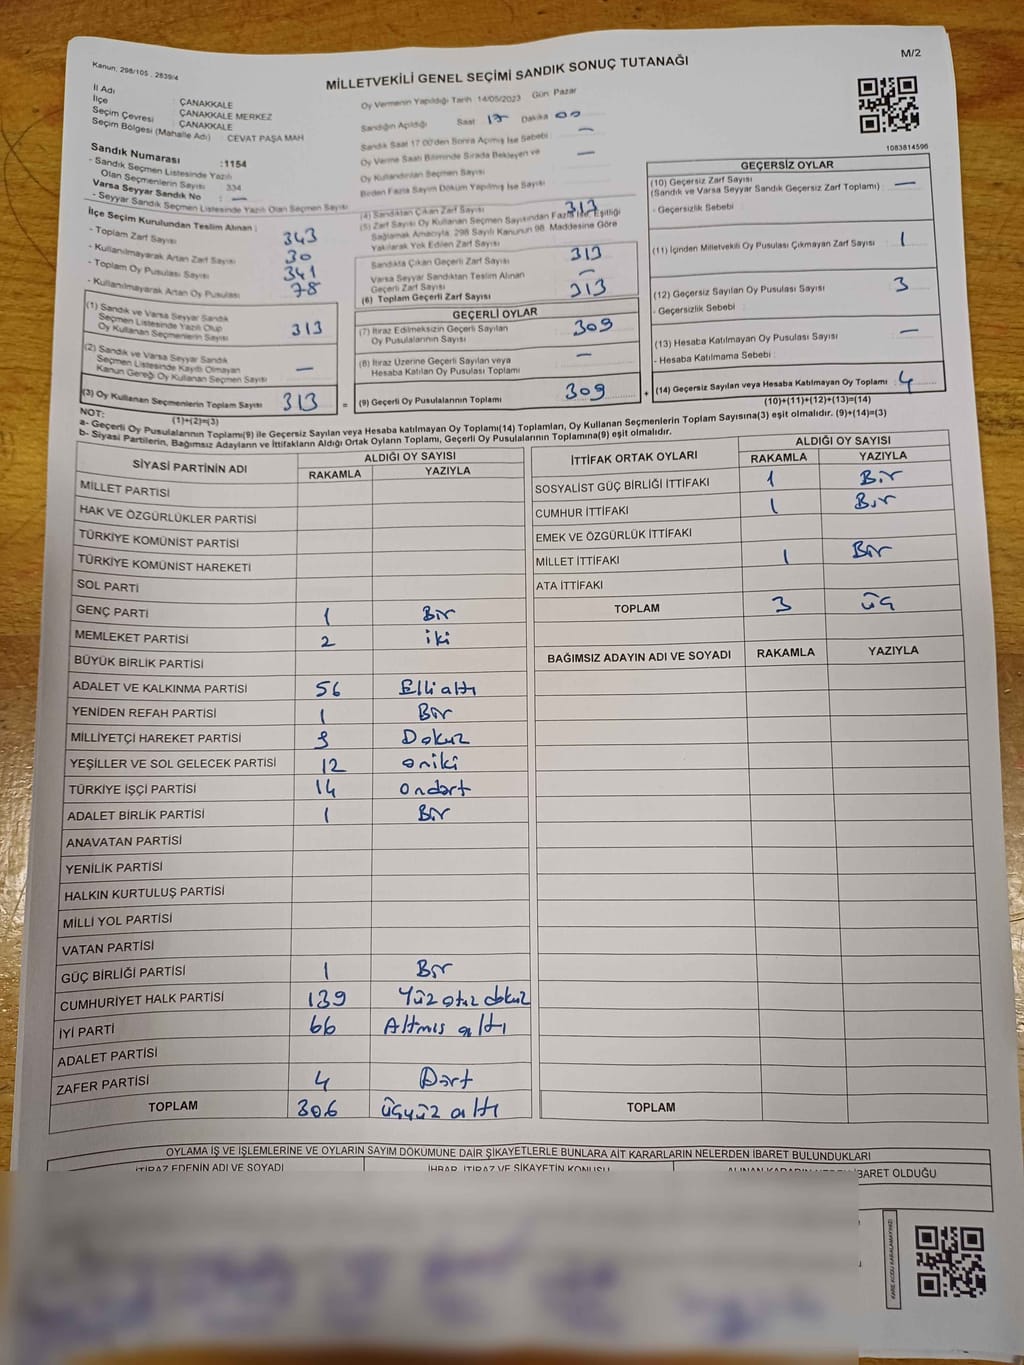 Kanun; 298/105 , 2839/4
M/2
MİLLETVEKİLİ GENEL SEÇİMİ SANDIK SONUÇ TUTANAĞI
İl Adı : ÇANAKKALE
İlçe : ÇANAKKALE MERKEZ
Seçim Çevresi : ÇANAKKALE
Seçim Bölgesi (Mahalle Adı) : CEVAT PAŞA MAH
Oy Vermenin Yapıldığı Tarih :14/05/2023 Gün: Pazar
Sandığın Açıldığı Saat 17 Dakika 00
Sandık Saat 17:00'den Sonra Açılmış İse Sebebi —
Oy Verme Saati Bitiminde Sırada Bekleyen ve
Oy Kullandırılan Seçmen Sayısı —
Birden Fazla Sayım Döküm Yapılmış İse Sayısı
1083814596
Sandık Numarası :1154
- Sandık Seçmen Listesinde Yazılı
Olan Seçmenlerin Sayısı 334
Varsa Seyyar Sandık No : —
- Seyyar Sandık Seçmen Listesinde Yazılı Olan Seçmen Sayısı
İlçe Seçim Kurulundan Teslim Alınan :
- Toplam Zarf Sayısı 343
- Kullanılmayarak Artan Zarf Sayısı 30
- Toplam Oy Pusulası Sayısı 341
- Kullanılmayarak Artan Oy Pusulası 78
(1) Sandık ve Varsa Seyyar Sandık
Seçmen Listesinde Yazılı Olup
Oy Kullanan Seçmenlerin Sayısı 313
(2) Sandık ve Varsa Seyyar Sandık
Seçmen Listesinde Kayıtlı Olmayan
Kanun Gereği Oy Kullanan Seçmen Sayısı —
(3) Oy Kullanan Seçmenlerin Toplam Sayısı 313 =
(1)+(2)=(3)
(4) Sandıktan Çıkan Zarf Sayısı 313
(5) Zarf Sayısı Oy Kullanan Seçmen Sayısından Fazla İse, Eşitliği
Sağlamak Amacıyla, 298 Sayılı Kanunun 98. Maddesine Göre
Yakılarak Yok Edilen Zarf Sayısı
Sandıkta Çıkan Geçerli Zarf Sayısı 313
Varsa Seyyar Sandıktan Teslim Alınan
Geçerli Zarf Sayısı —
(6) Toplam Geçerli Zarf Sayısı 313
GEÇERLİ OYLAR
(7) İtiraz Edilmeksizin Geçerli Sayılan
Oy Pusulalarının Sayısı 309
(8) İtiraz Üzerine Geçerli Sayılan veya
Hesaba Katılan Oy Pusulası Toplamı —
(9) Geçerli Oy Pusulalarının Toplamı 309 +
GEÇERSİZ OYLAR
(10) Geçersiz Zarf Sayısı
(Sandık ve Varsa Seyyar Sandık Geçersiz Zarf Toplamı) : —
- Geçersizlik Sebebi :
(11) İçinden Milletvekili Oy Pusulası Çıkmayan Zarf Sayısı 1
(12) Geçersiz Sayılan Oy Pusulası Sayısı 3
- Geçersizlik Sebebi :
(13) Hesaba Katılmayan Oy Pusulası Sayısı —
- Hesaba Katılmama Sebebi :
(14) Geçersiz Sayılan veya Hesaba Katılmayan Oy Toplamı : 4
(10)+(11)+(12)+(13)=(14)
NOT:
a- Geçerli Oy Pusulalarının Toplamı(9) ile Geçersiz Sayılan veya Hesaba katılmayan Oy Toplamı(14) Toplamları, Oy Kullanan Seçmenlerin Toplam Sayısına(3) eşit olmalıdır. (9)+(14)=(3)
b- Siyasi Partilerin, Bağımsız Adayların ve İttifakların Aldığı Ortak Oyların Toplamı, Geçerli Oy Pusulalarının Toplamına(9) eşit olmalıdır.
SİYASİ PARTİNİN ADI ALDIĞI OY SAYISI
RAKAMLA YAZIYLA
MİLLET PARTİSİ
HAK VE ÖZGÜRLÜKLER PARTİSİ
TÜRKİYE KOMÜNİST PARTİSİ
TÜRKİYE KOMÜNİST HAREKETİ
SOL PARTİ
GENÇ PARTİ 1 Bir
MEMLEKET PARTİSİ 2 iki
BÜYÜK BİRLİK PARTİSİ
ADALET VE KALKINMA PARTİSİ 56 Elli altı
YENİDEN REFAH PARTİSİ 1 Bir
MİLLİYETÇİ HAREKET PARTİSİ 9 Dokuz
YEŞİLLER VE SOL GELECEK PARTİSİ 12 oniki
TÜRKİYE İŞÇİ PARTİSİ 14 ondört
ADALET BİRLİK PARTİSİ 1 Bir
ANAVATAN PARTİSİ
YENİLİK PARTİSİ
HALKIN KURTULUŞ PARTİSİ
MİLLİ YOL PARTİSİ
VATAN PARTİSİ
GÜÇ BİRLİĞİ PARTİSİ 1 Bir
CUMHURİYET HALK PARTİSİ 139 Yüz otuz dokuz
İYİ PARTİ 66 Altmış altı
ADALET PARTİSİ
ZAFER PARTİSİ 4 Dört
TOPLAM 306 üçyüz altı
İTTİFAK ORTAK OYLARI ALDIĞI OY SAYISI
RAKAMLA YAZIYLA
SOSYALİST GÜÇ BİRLİĞİ İTTİFAKI 1 Bir
CUMHUR İTTİFAKI 1 Bir
EMEK VE ÖZGÜRLÜK İTTİFAKI
MİLLET İTTİFAKI 1 Bir
ATA İTTİFAKI
TOPLAM 3 üç
BAĞIMSIZ ADAYIN ADI VE SOYADI RAKAMLA YAZIYLA
TOPLAM
OYLAMA İŞ VE İŞLEMLERİNE VE OYLARIN SAYIM DÖKÜMÜNE DAİR ŞİKAYETLERLE BUNLARA AİT KARARLARIN NELERDEN İBARET BULUNDUKLARI
İTİRAZ EDENİN ADI VE SOYADI İHBAR, İTİRAZ VE ŞİKAYETİN KONUSU ALINAN KARARIN NEDEN İBARET OLDUĞU
KARE KODU KARALAMAYINIZ